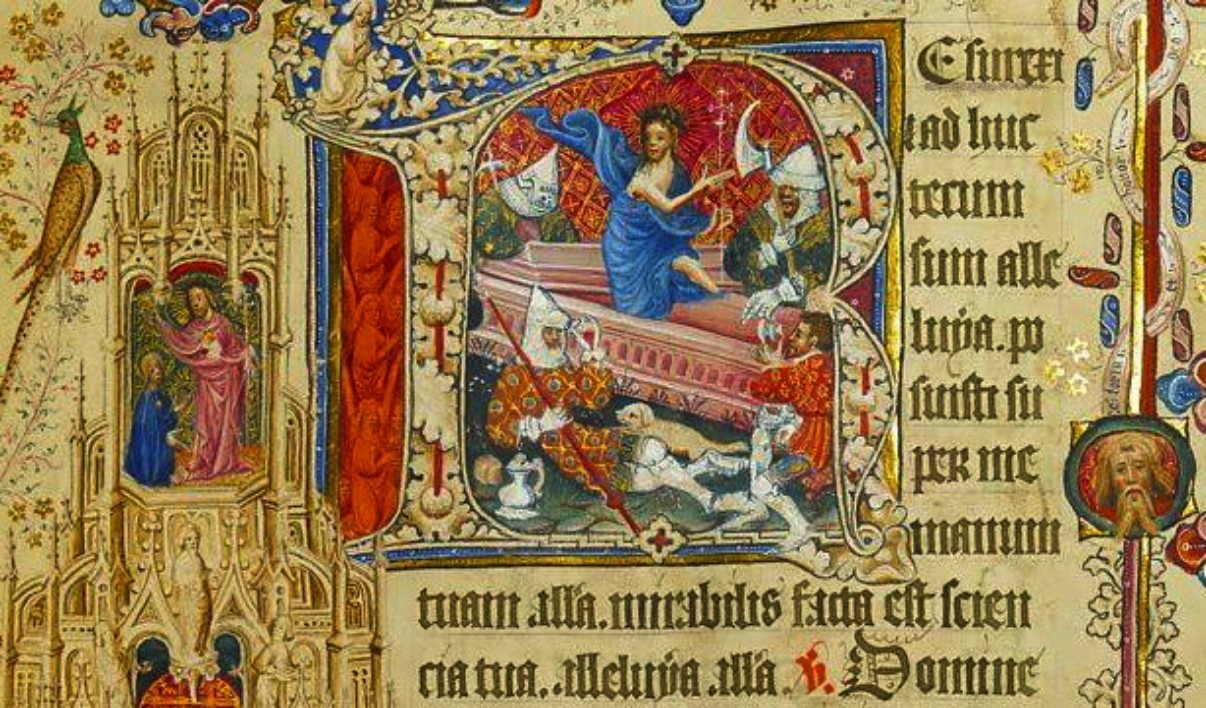 Esurrxi
tad huc
tecum
sum alle
luya. po
suisti su
per me
manum
tuam .alla. mirabilis facta est scien
cia tua. .alleluya .alla. v. Domine